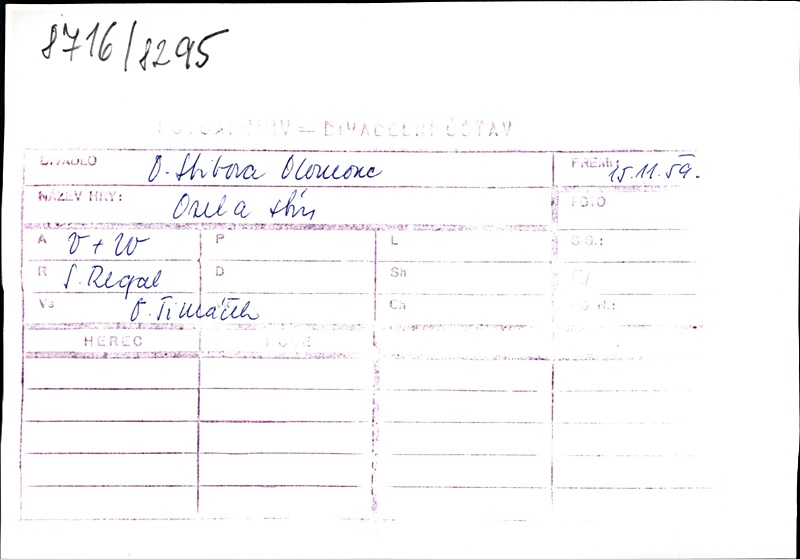 8716/8295
FOTOARCHIV — DIVADELNÍ ÚSTAV
DIVADLO O. Stibora Olomouc PREM.: 15.11.59.
NÁZEV HRY: Osel a stín FOTO
A V + W P L SG.:
R S. Regal D Sh
Vs O. Šimáček Ch
HEREC ROLE